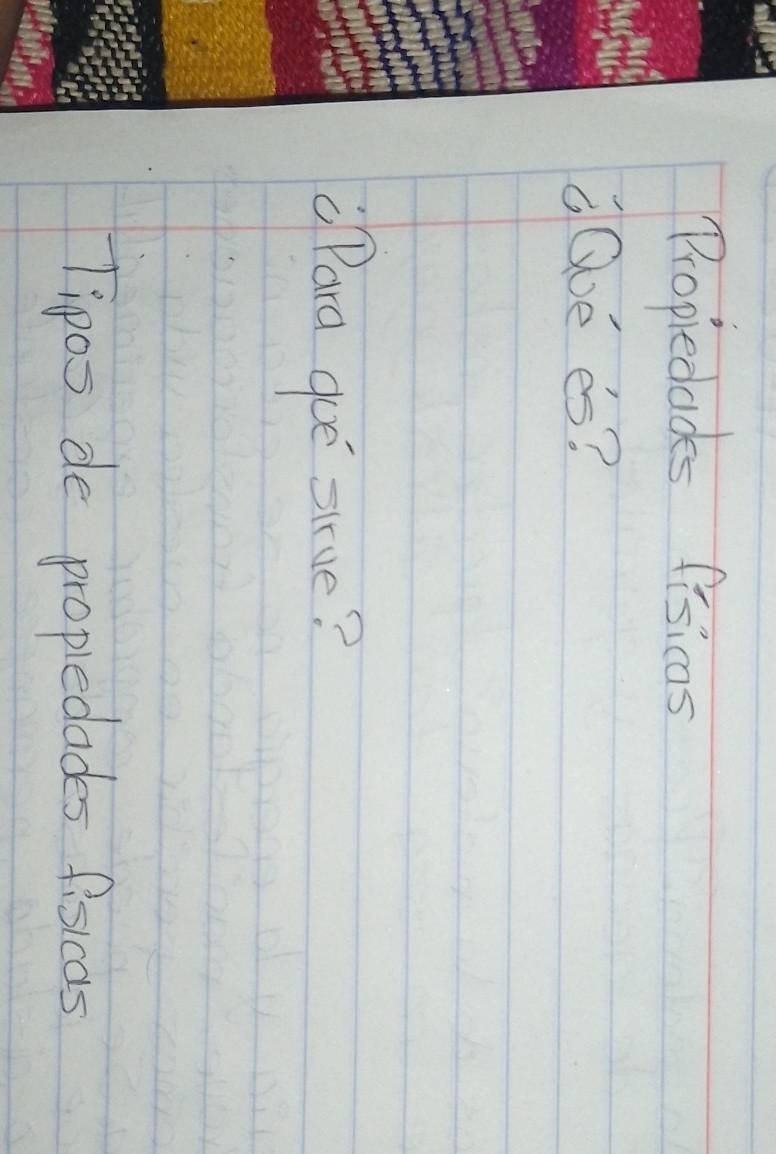 Propiedades físicas
¿Qué és?
¿Para qué sirve?
Tipos de propiedades físicas